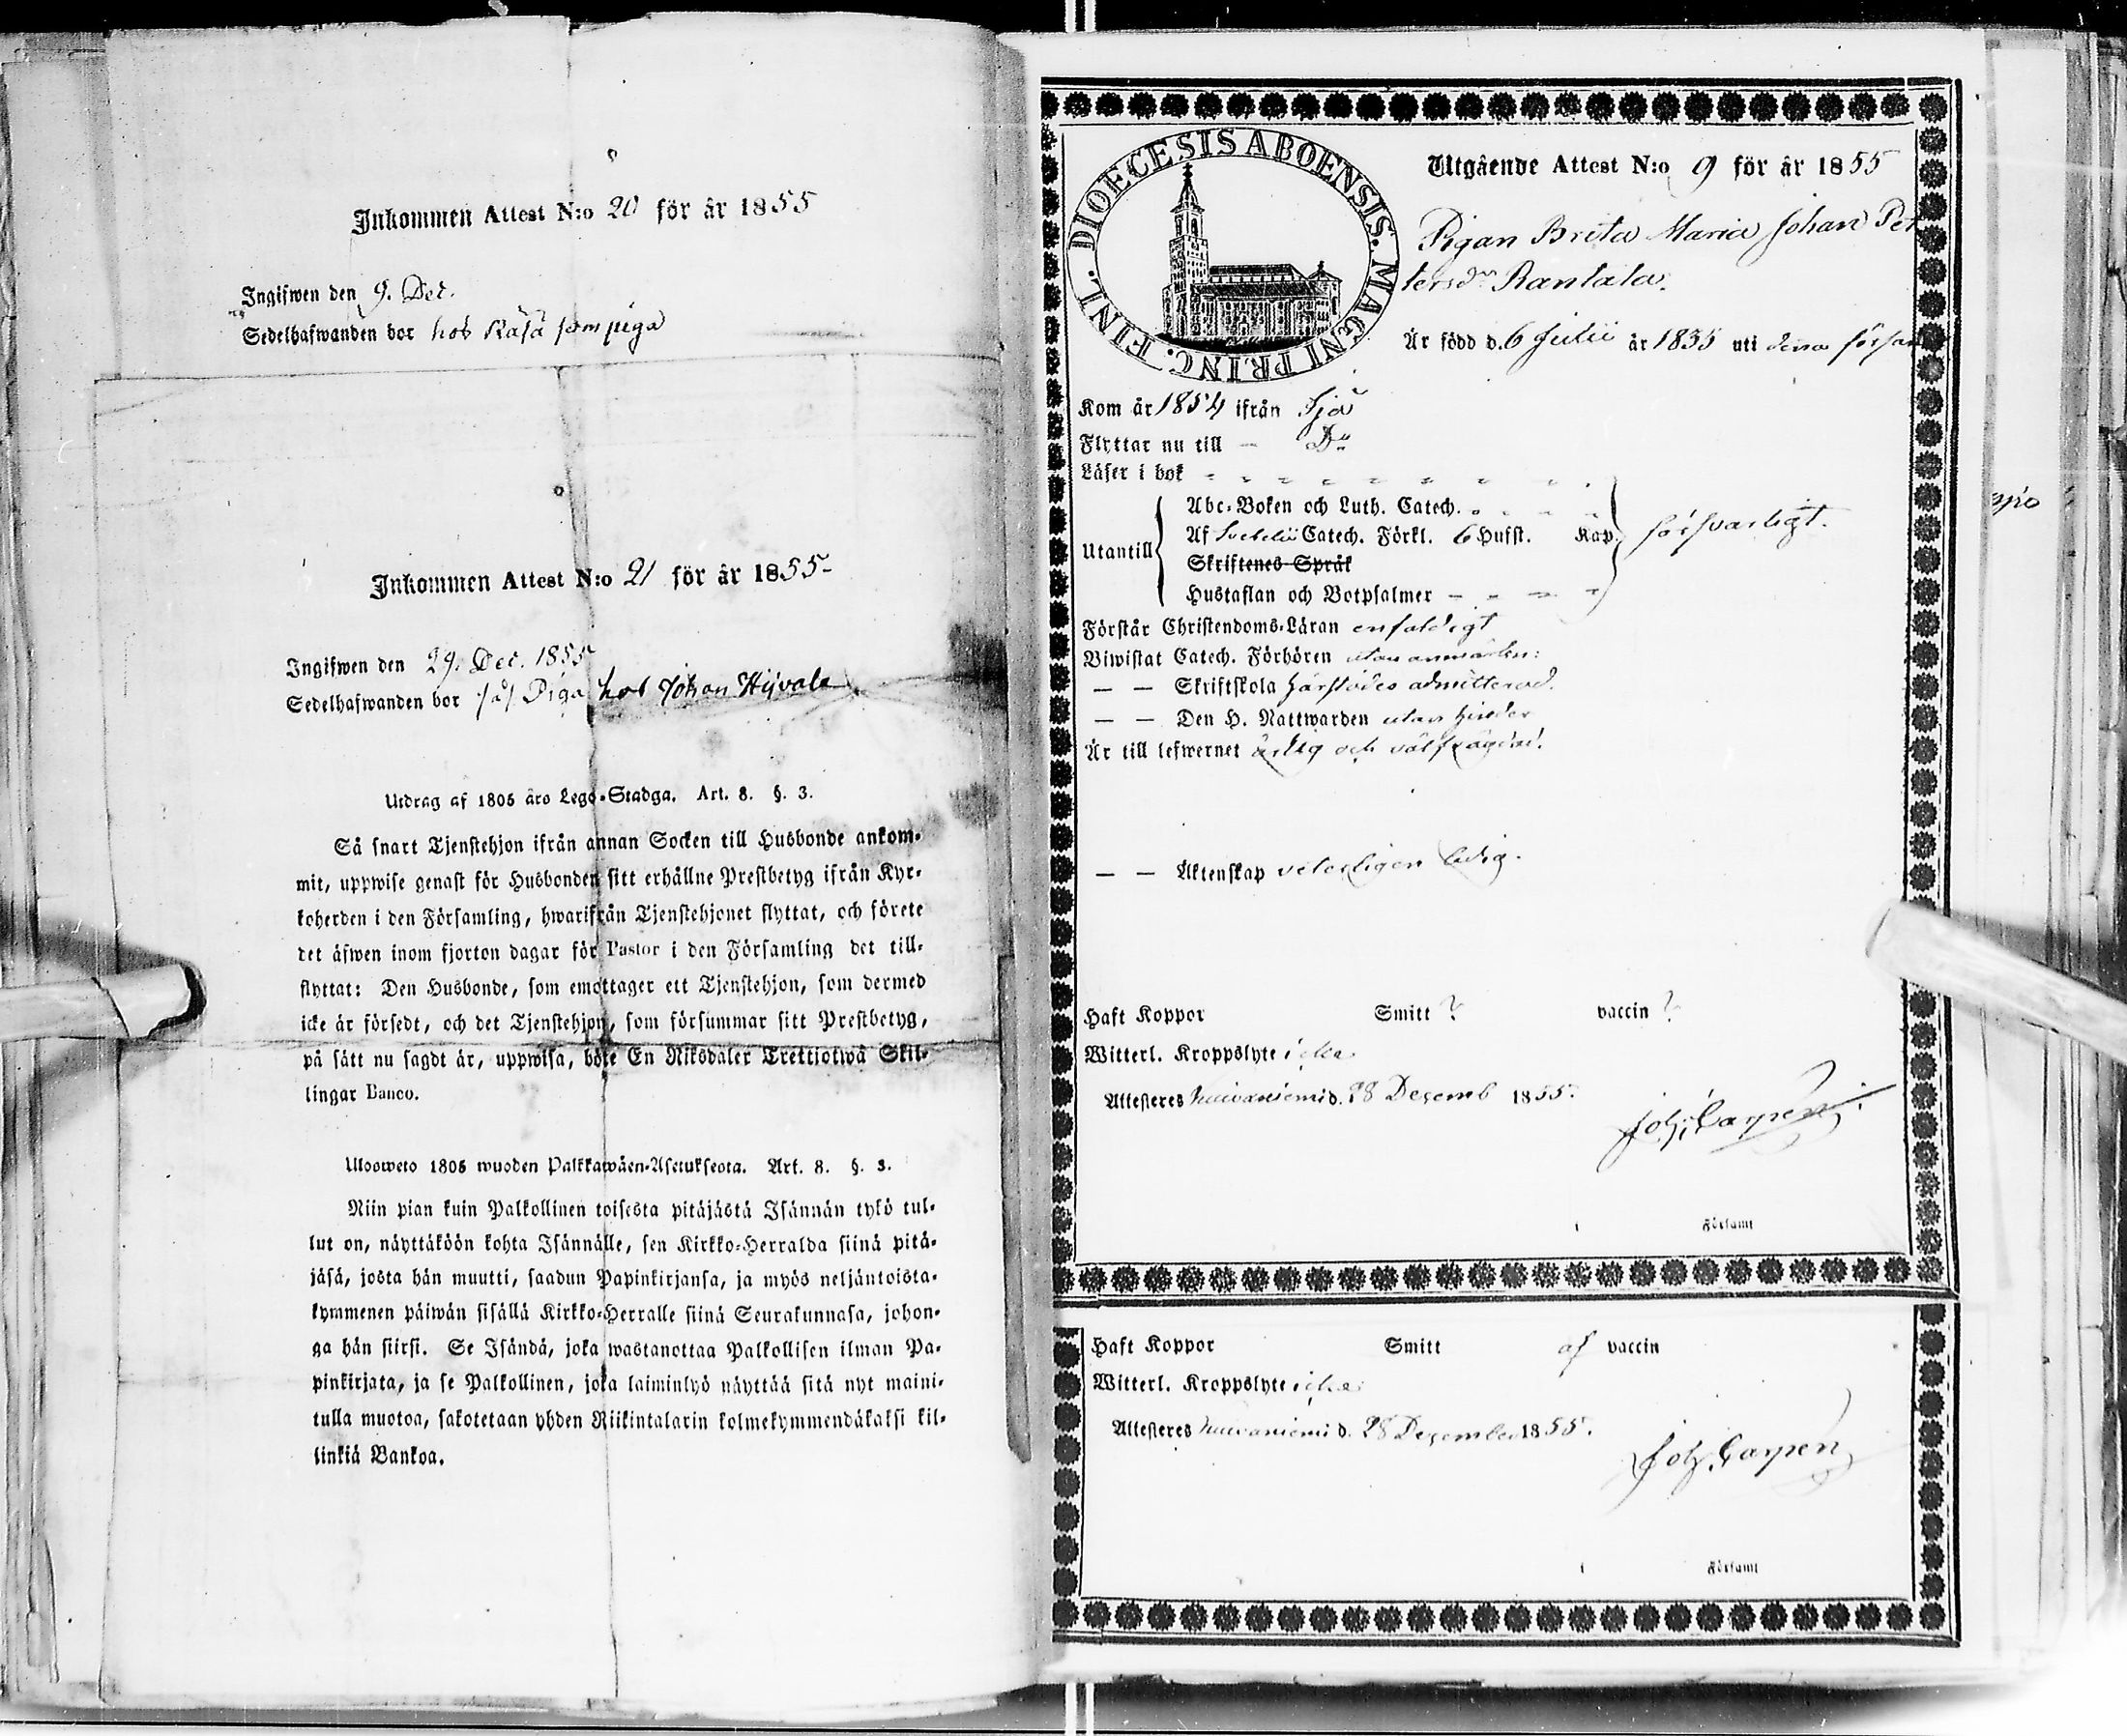 Inkommen Attest N:o 20 för år 1855
Ingifwen den 9. Dec.
Sedelhafwanden bor hos Räsä som piga
Inkommen Attest N:o 21 för år 1855-
Ingifwen den 29. Dec. 1855
Sedelhafwanden bor s. Piga hos Johan Hyvälä
Utdrag af 1805 års Lego-Stadga. Art. 8. §. 3.
Så snart Tjenstehjon ifrån annan Socken till Husbonde ankom-
mit, uppwise genast för Husbonden sitt erhållne Prestbetyg ifrån Kyr-
koherden i den Församling, hwarifrån Tjenstehjonet flyttat, och förete
det äfwen inom fjorton dagar för Pastor i den Församling det till-
flyttat: Den Husbonde, som emottager ett Tjenstehjon, som dermed
icke är försedt, och det Tjenstehjon, som försummar sitt Prestbetyg,
på sätt nu sagdt är, uppwisa, böte En Riksdaler Trettiotwå Skil-
lingar Banco.
Ulosweto 1805 wuoden Palkkawäen-Asetuksesta. Art. 8. §. 3.
Niin pian kuin Palkollinen toisesta pitäjästä Isännän tykö tul-
lut on, näyttäköön kohta Isännälle, sen Kirkko-Herralda siinä pitä-
jäsä, josta hän muutti, saadun Papinkirjansa, ja myös neljäntoista-
kymmenen päiwän sisällä Kirkko-Herralle siinä Seurakunnasa, johon-
ga hän siirsi. Se Isändä, joka wastanottaa Palkollisen ilman Pa-
pinkirjata, ja se Palkollinen, joka laiminlyö näyttää sitä nyt maini-
tulla muotoa, sakotetaan yhden Riikintalarin kolmekymmendäkaksi kil-
linkiä Bankoa.
DIOECESIS ABOENSIS. MAGNI PRINC. FINL.
Utgående Attest N:o 9 för år 1855
Pigan Brita Maria Johan Pet
tersdr Rantala.
Är född d. 6 Julii år 1835 uti denna försam
Kom år 1854 ifrån Ijo
Flyttar nu till - Do
Läser i bok - - - - - - - -
Utantill
Abc-Boken och Luth. Catech. - - - -
Af Svebelii Catech. Förkl. 6 Hufst. Kap. försvarligt.
Skriftenes Språk
Hustaflan och Botpsalmer - - - -
Förstår Christendoms-Läran enfaldigt
Biwistat Catech. Förhören utan anmärkn:
— — Skriftskola härstädes admitterad.
— — Den H. Nattwarden utan hinder
Är till lefwernet ärlig och välfrägdad.
— — Äktenskap veterligen ledig.
Haft Koppor Smitt ? vaccin ?
Witterl. Kroppslyte icke
Attesteres Kuivaniemi d. 28 Decemb 1855.
Joh. Carpén
i Församl
Haft Koppor Smitt af vaccin
Witterl. Kroppslyte icke
Attesteres Kuivaniemi d. 28 December 1855.
Joh. Carpén
i Församl